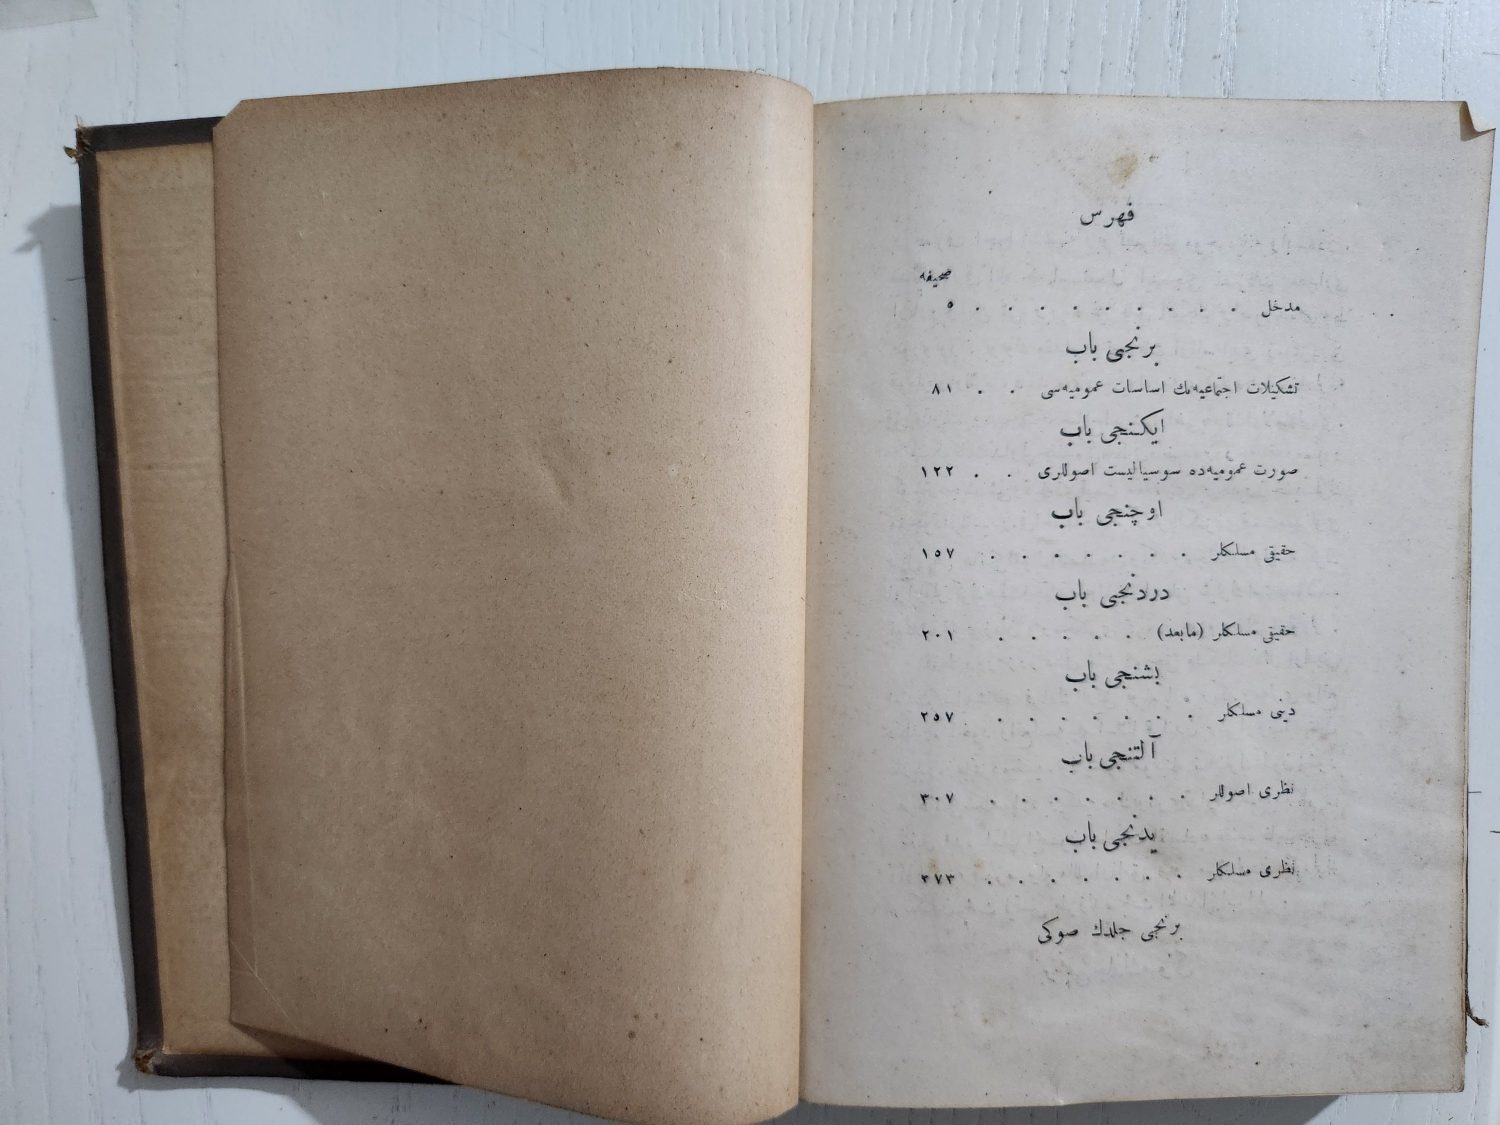 فهرس
صحیفه
مدخل . . . . . . . . . ٥
برنجی باب
تشکیلات اجتماعیه‌نك اساسات عمومیه‌سی . . ٨١
ایکنجی باب
صورت عمومیه‌ده سوسیالیست اصوللری . . ١٢٢
اوچنجی باب
حقیقی مسلکلر . . . . . . . ١٥٧
دردنجی باب
حقیقی مسلکلر (مابعد) . . . . . ٢٠١
بشنجی باب
دینی مسلکلر . . . . . . . ٢٥٧
آلتنجی باب
نظری اصوللر . . . . . . . ٣٠٧
یدنجی باب
نظری مسلکلر . . . . . . . ٣٧٣
برنجی جلدك صوکی